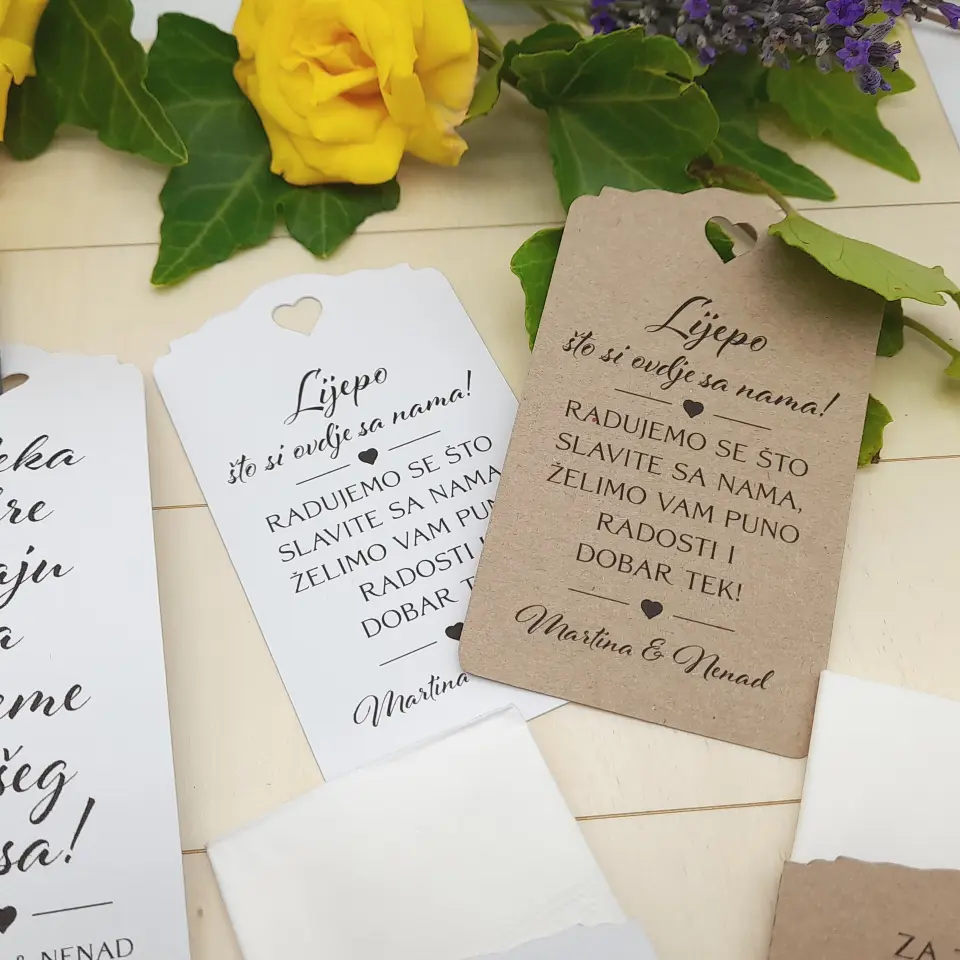 eka
re
aju
a
eme
šeg
sa!
& NENAD
Lijepo
što si ovdje sa nama!
RADUJEMO SE ŠTO
SLAVITE SA NAMA
ŽELIMO VAM PUN
RADOSTI
DOBAR T
Martina
Lijepo
što si ovdje sa nama!
RADUJEMO SE ŠTO
SLAVITE SA NAMA,
ŽELIMO VAM PUNO
RADOSTI I
DOBAR TEK!
Martina & Nenad
ZA